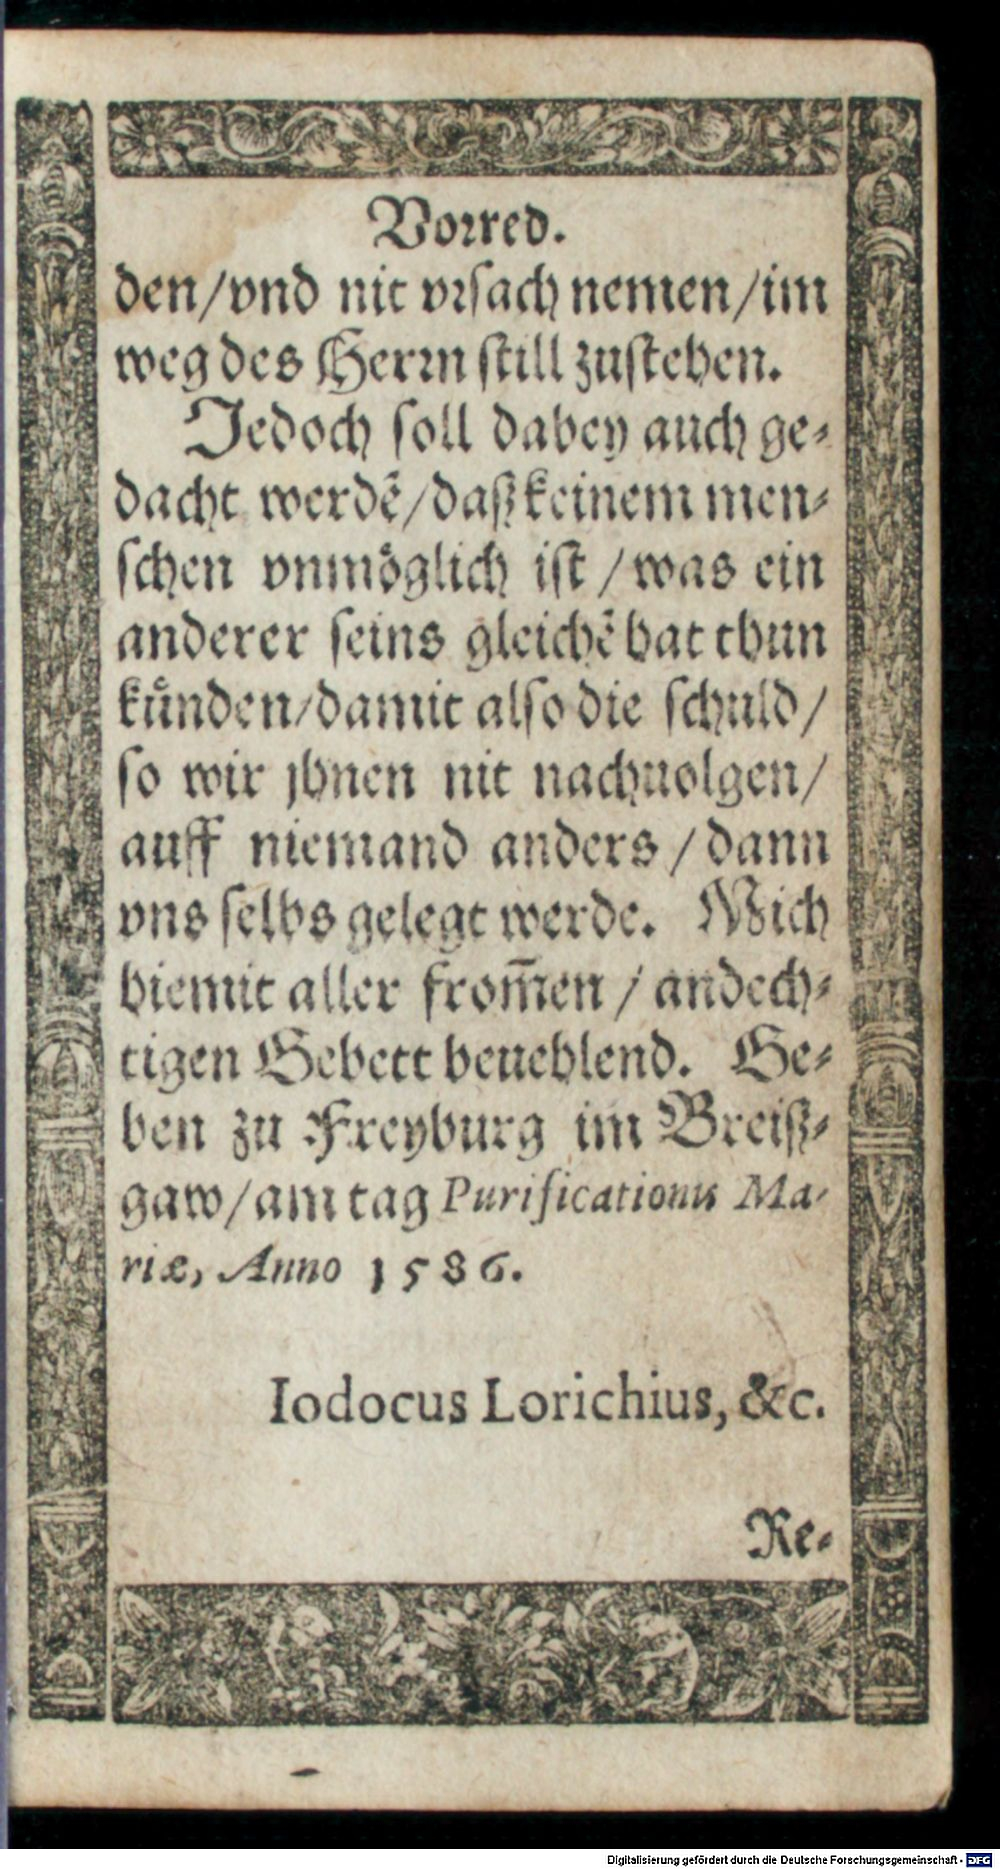 Vorred.
den/vnd nit vrsach nemen/im
weg des Herrn still zustehen.
Jedoch soll dabey auch ge-
dacht werdẽ/daß keinem men-
schen vnmöglich ist / was ein
anderer seins gleichẽ hat thun
künden/damit also die schuld/
so wir jhnen nit nachuolgen/
auff niemand anders / dann
vns selbs gelegt werde. Mich
hiemit aller from̃en / andech-
tigen Gebett beuehlend. Ge-
ben zu Freyburg im Breiß-
gaw/am tag Purificationis Ma-
riæ, Anno 1586.
Iodocus Lorichius, &c.
Re-
Digitalisierung gefördert durch die Deutsche Forschungsgemeinschaft - DFG